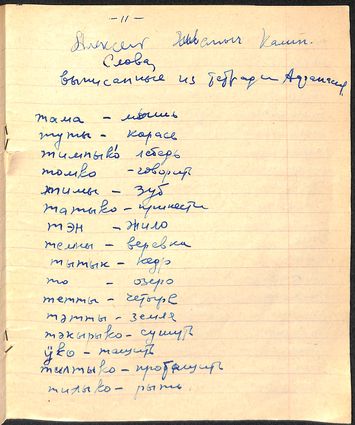 - 11 -
Алексей Иваныч Калин.
Слова,
выписанные из тетради
тама - мышь
туты - карась
тимпыко лебедь
томко - говорить
тимы - зуб
татыко - принести
тэн - жило
темны - веревка
тытык - кедр
то - озеро
тетты - четыре
тэтты - земля
тэкырыко - сушить
ӱко - тащить
тилтыко - протащить
тилыко - рыть